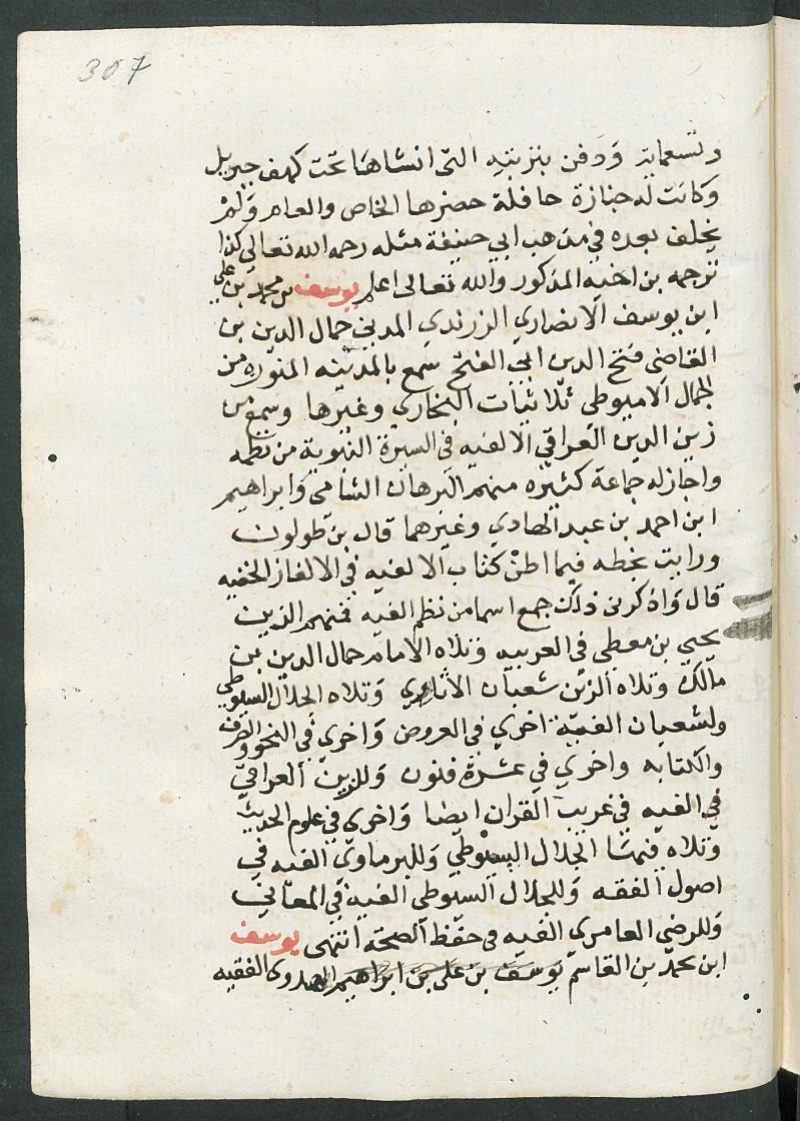 307
وتسعماية ودفن بتربته التى انشاها تحت كهف جبريل
وكانت له جنازة حافلة حضرها الخاص والعام ولم
يخلف بعده في مذهب ابي حنيفة مثله رحمه الله تعالى كذا
ترجمه بن اخيه المذكور والله تعالى اعلم يوسف بن محمد بن علي
ابن يوسف الانصاري الزرندي المدني جمال الدين بن
القاضي فتح الدين ابي الفتح سمع بالمدينه المنوره من
الجمال الاميوطي ثلاثيات البخاري وغيرها وسمع من
زين الدين العراقي الالفيه في السيرة النبوية من نظمه
واجاز له جماعة كثيره منهم البرهان الشامى وابراهيم
ابن احمد بن عبد الهادى وغيرهما قال بن طولون
ورايت بخطه فيما اظن كتاب الالفيه في الالغاز الخفيه
قال واذكرنى ذلك جمع اسما من نظم الفيه فمنهم الزين
يحيي بن معطي في العربيه وتلاه الامام جمال الدين بن
مالك وتلاه الزين شعبان الاثاري وتلاه الجلال السيوطي
ولشعبان الفية اخري في العروض واخري في النحو والصرف
والكتابه واخري في عشرة فنون وللزين العراقي
في الفيه في غريب القران ايضا واخري في علوم الحديث
وتلاه فيها الجلال السيوطي وللبرماوي الفيه في
اصول الفقه وللجلال السيوطي الفيه في المعاني
وللرضي العامري الفيه في حفظ الصحة انتهى يوسف
ابن محمد بن القاسم يوسف بن علي بن ابراهيم الفقيه